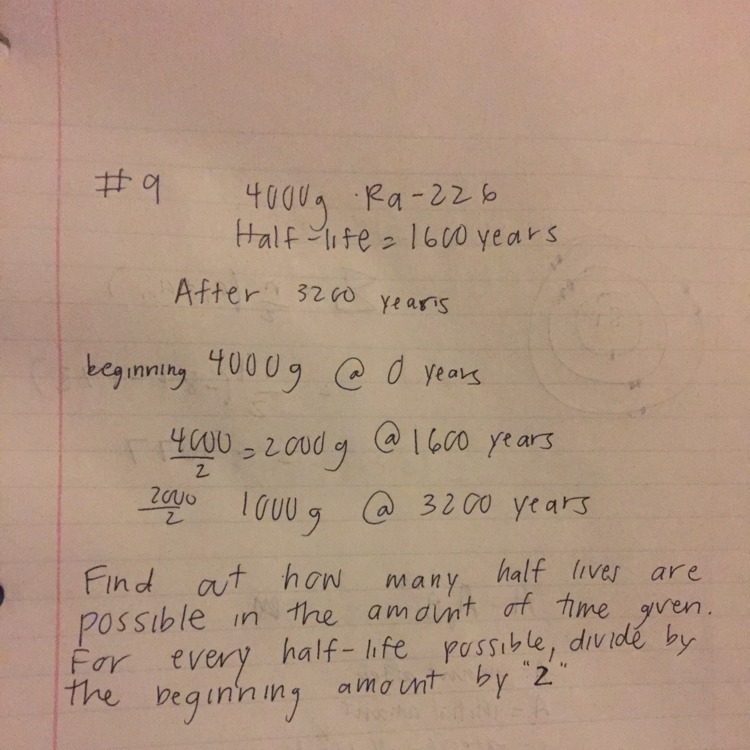 #9 4000g Ra-226
Half-life = 1600 years
After 3200 years
beginning 4000g @ 0 years
4000/2 = 2000g @ 1600 years
2000/2 1000g @ 3200 years
Find out how many half lives are
possible in the amount of time given.
For every half-life possible, divide by
the beginning amount by "2"